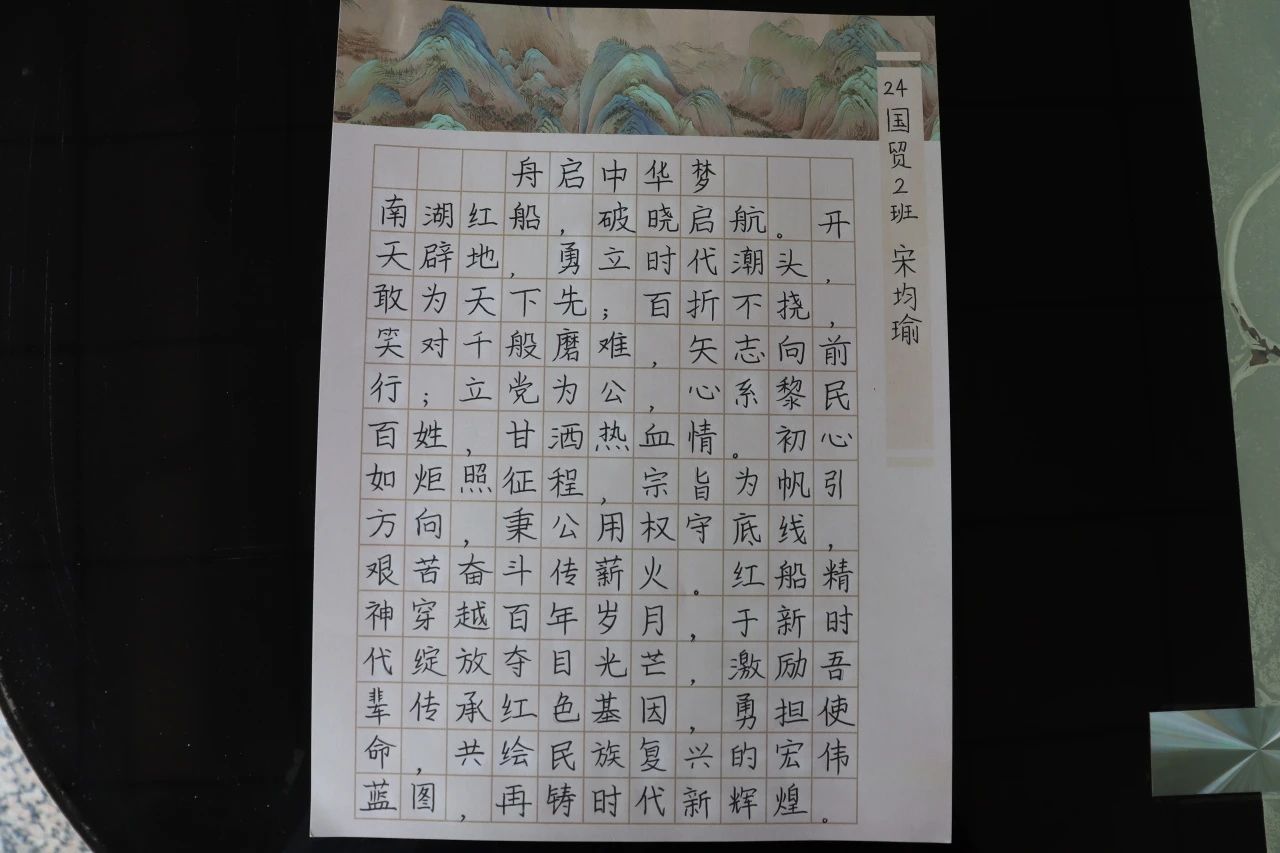 舟启中华梦
南湖红船，破晓启航。开
天辟地，勇立时代潮头，
敢为天下先；百折不挠，
笑对千般磨难，矢志向前
行；立党为公，心系黎民
百姓，甘洒热血情。初心
如炬照征程，宗旨为帆引
方向，秉公用权守底线，
艰苦奋斗传薪火。红船精
神穿越百年岁月，于新时
代绽放夺目光芒，激励吾
辈传承红色基因，勇担使
命，共绘民族复兴的宏伟
蓝图，再铸时代新辉煌。
24国贸2班 宋均瑜